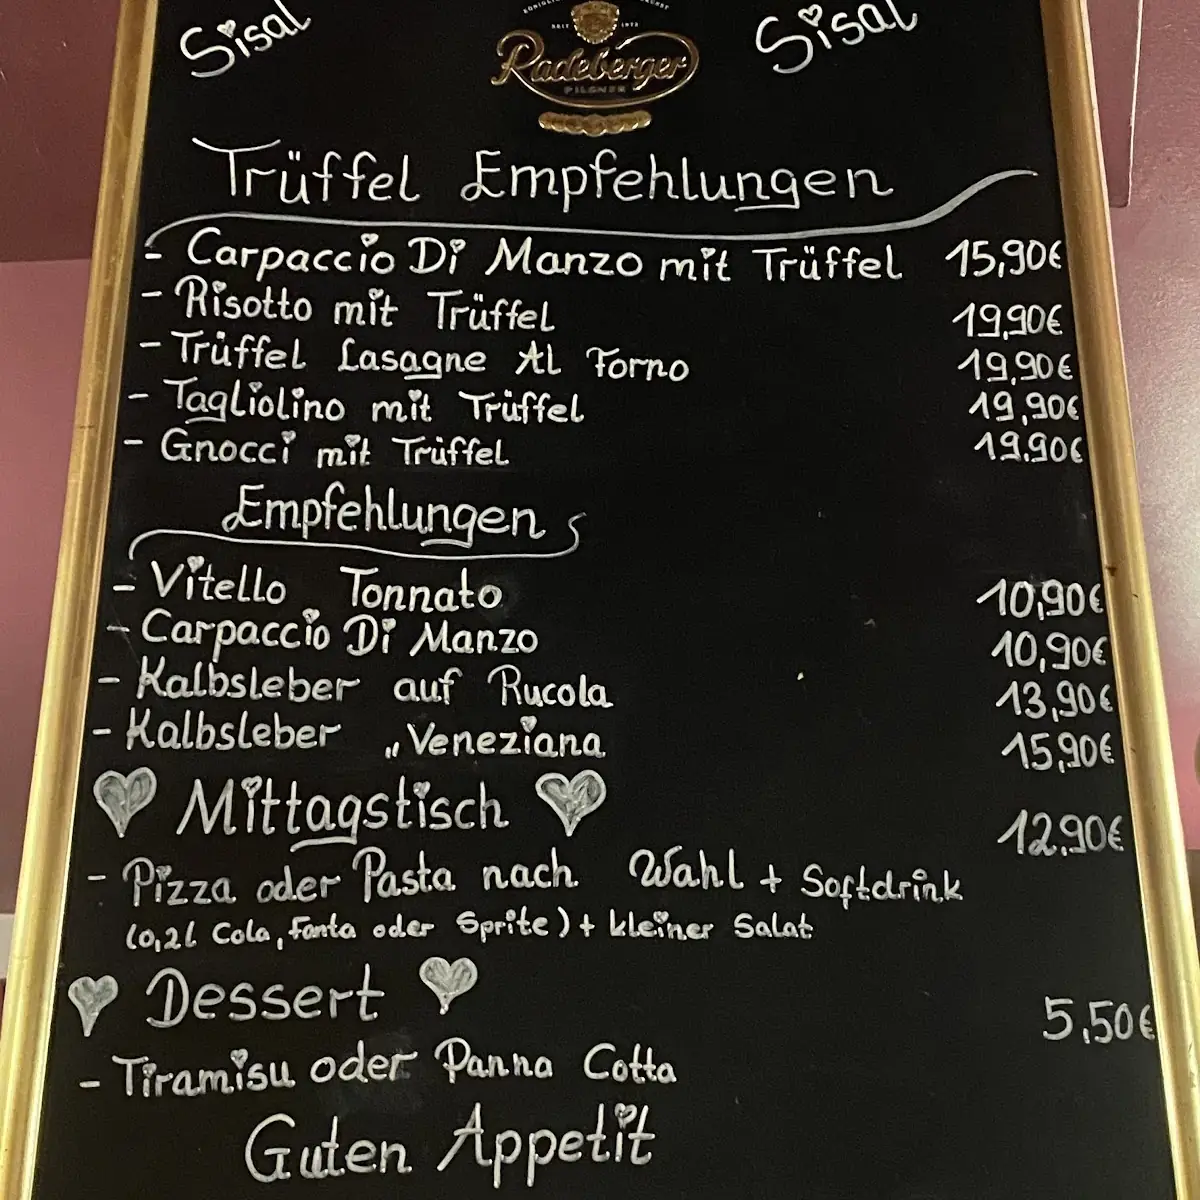 Sisal
SEIT 1872
Radeberger
PILSNER
Sisal
Trüffel Empfehlungen
- Carpaccio Di Manzo mit Trüffel 15,90€
- Risotto mit Trüffel 19,90€
- Trüffel Lasagne Al Forno 19,90€
- Tagliolino mit Trüffel 19,90€
- Gnocci mit Trüffel 19.90€
Empfehlungen
- Vitello Tonnato 10,90€
- Carpaccio Di Manzo 10,90€
- Kalbsleber auf Rucola 13,90€
- Kalbsleber „Veneziana 15,90€
Mittagstisch 12,90€
- Pizza oder Pasta nach Wahl + Softdrink
(0,2l Cola, Fanta oder Sprite) + kleiner Salat
Dessert 5,50€
- Tiramisu oder Panna Cotta
Guten Appetit